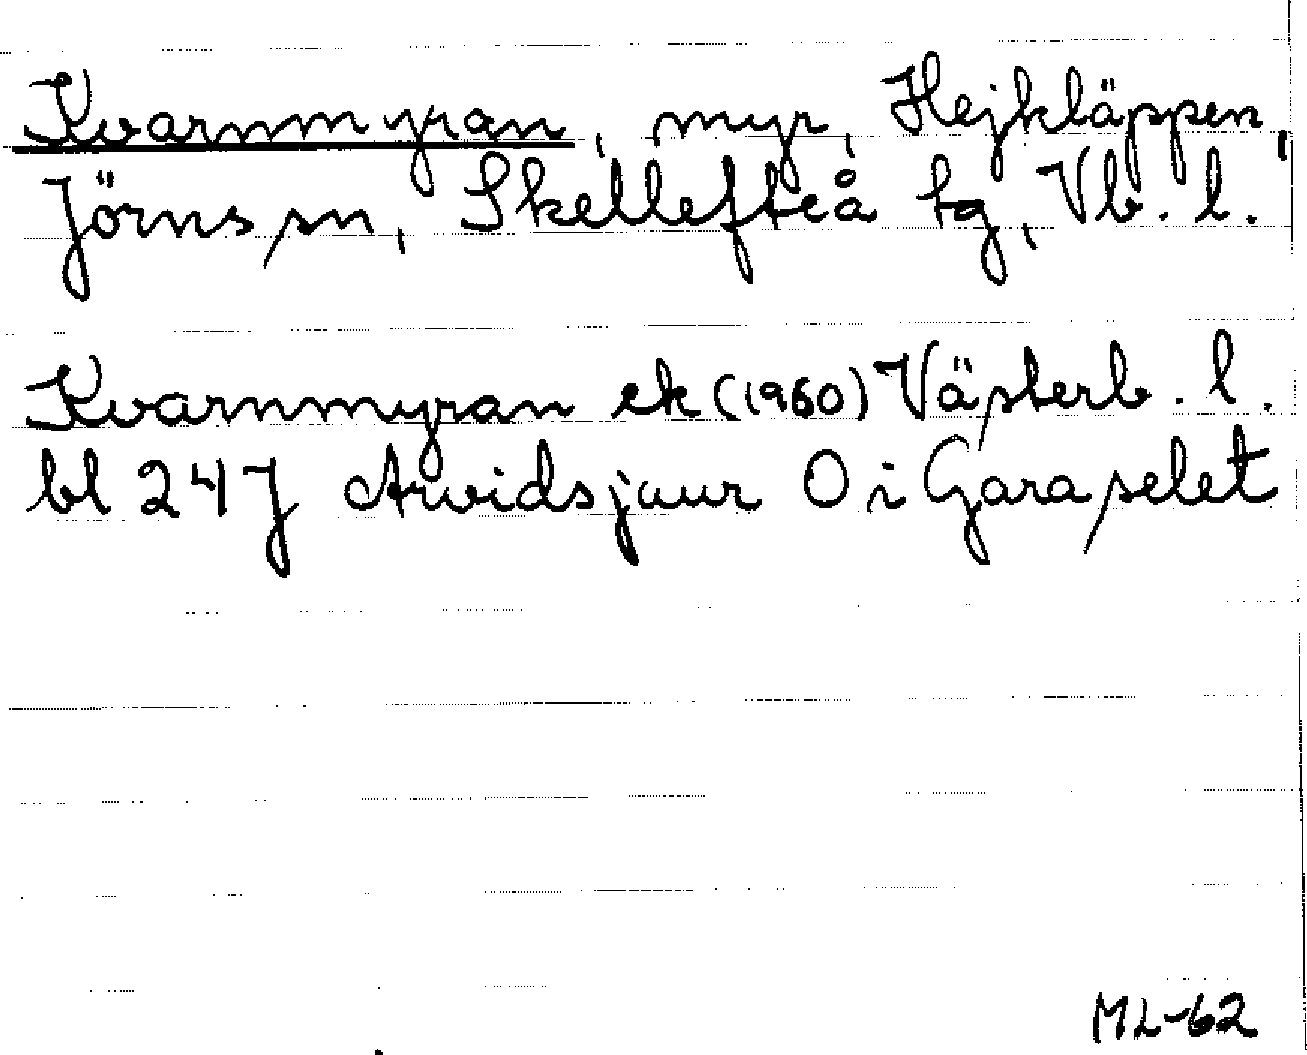 Kvarnmyran, myr, Hejkläppen,
Jörns sn, Skellefteå tg, Vb. l.
Kvarnmyran ek (1960) Västerb. l.
bl 24J Arvidsjaur O i Garaselet
ML-62